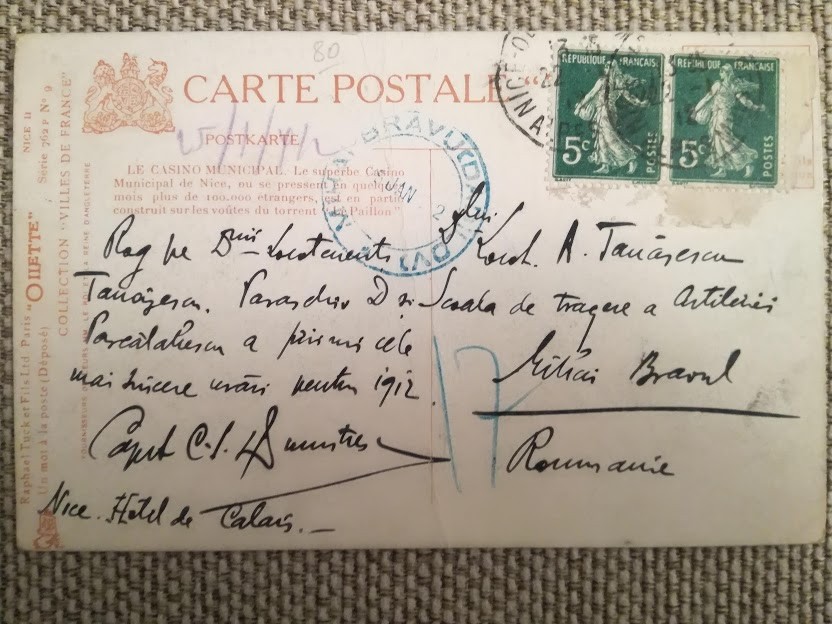 80
CARTE POSTALE
POSTKARTE
LE CASINO MUNICIPAL. Le superbe Casino
Municipal de Nice, ou se pressent en quelques
mois plus de 100.000 étrangers, est en partie
construit sur les voûtes du torrent "Le Paillon"
NICE II
Série 762 P Nº 9
COLLECTION "VILLES DE FRANCE"
Raphael Tuck et Fils Ltd Paris "OILETTE"
Un mot à la poste (Déposé)
REPUBLIQUE FRANÇAISE
5c
POSTES
REPUBLIQUE FRANÇAISE
5c
POSTES
JAN
Rog pe Dnii Locotenenti
Tanăsescu. Paraschiv D si
a primi cele
mai sincere urări pentru 1912
Capt C. S. Dumitrescu
Nice. Hotel de Calais.
Locot. A. Tanăsescu
Scoala de tragere a Artileriei
Mihai Bravul
Roumanie
17